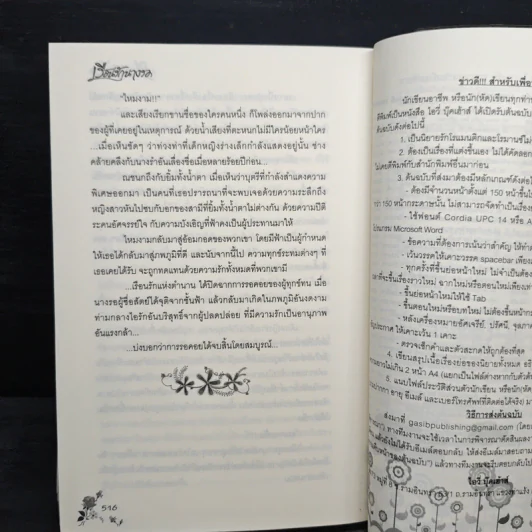 เรือนรักนางรอ
"ไหมงาม!!"
และเสียงเรียกขานชื่อของใครคนหนึ่ง ก็โพล่งออกมาจากปาก
ของผู้ที่เคยอยู่ในเหตุการณ์ ด้วยน้ำเสียงที่ตะหนกไม่มีใครน้อยหน้าใคร
...เมื่อเห็นชัดๆ ว่าท่วงท่าที่เด็กหญิงร่างเล็กกำลังแสดงอยู่นั้น ช่าง
คล้ายคลึงกับนางรำอันเลื่องชื่อเมื่อหลายร้อยปีก่อน...
ณชนกถึงกับยิ้มทั้งน้ำตา เมื่อเห็นว่าบุตรีที่กำลังสำแดงความ
พิเศษออกมา เป็นคนที่เธอปรารถนาที่จะพบเจอด้วยความระลึกถึง
หญิงสาวหันไปซบกับอกของสามีที่ยิ้มทั้งน้ำตาไม่ต่างกัน ด้วยความปีติ
ระคนอัศจรรย์ใจ กับความบังเอิญที่ฟ้าคงเป็นผู้ประทานมาให้
ไหมงามกลับมาสู่อ้อมกอดของพวกเขา โดยมีฟ้าเป็นผู้กำหนด
ให้เธอได้กลับมาสู่ภพภูมิที่ดี และนับจากนี้ไป ความทุกข์ระทมต่างๆ ที่
เธอเคยได้รับ จะถูกทดแทนด้วยความรักทั้งหมดที่พวกเขามี
...เรือนรักแห่งตำนาน ได้ปิดฉากการรอคอยของผู้ทุกข์ทน เมื่อ
นางรอผู้ซื่อสัตย์ได้จุติจากชั้นฟ้า แล้วกลับมาเกิดในภพภูมิอันงดงาม
ท่ามกลางไอรักอันบริสุทธิ์จากผู้ปลดปล่อย ที่มีความรักเป็นอานุภาพ
อันแรงกล้า...
...บ่งบอกว่าการรอคอยได้จบสิ้นโดยสมบูรณ์...
516
ข่าวดี!!! สำหรับเพื่อ
นักเขียนอาชีพ หรือนัก(หัด)เขียนทุกท่าน
ตีพิมพ์เป็นหนังสือ ไอวี่ บุ๊คเฮ้าส์ ได้เปิดรับต้นฉบับ
ต้นฉบับดังต่อไปนี้
1. เป็นนิยายรักโรแมนติกและโรมานซ์ไม่
2. ต้องเป็นเรื่องที่แต่งขึ้นเอง ไม่ได้คัดลอก
ไม่เคยตีพิมพ์กับสำนักพิมพ์อื่นมาก่อน
3. ต้นฉบับที่ส่งมาต้องมีลักษณะดังต่อไป
- ต้องมีจำนวนหน้าตั้งแต่ 150 หน้าขึ้น
กว่า 150 หน้ากระดาษนั้น ไม่สามารถจัดทำเป็นเรื่อง
- ใช้ฟอนต์ Cordia UPC 14 หรือ A
โปรแกรม Microsoft Word
- ข้อความที่ต้องการเน้นว่าสำคัญ ให้ทำ
- เว้นวรรคให้เคาะวรรค spacebar เพียง
- ทุกครั้งที่ขึ้นย่อหน้าใหม่ ไม่จำเป็นต้อง
- ขึ้นย่อหน้าใหม่ให้ใช้ Tab
- ขึ้นตอนใหม่หรือบทใหม่ ไม่ต้องขึ้นหน้า
- หลังเครื่องหมายอัศเจรีย์, ปรัศนี, จุลภาค
ให้เคาะเว้น 1 เคาะ
- ตรวจเช็กคำและตัวสะกดให้ถูกต้องที่สุด
4. เขียนสรุปเนื้อเรื่องย่อของนิยายทั้งหมด
ไม่เกิน 2 หน้า A4 (แยกเป็นไฟล์ต่างหากกับตัวต้น
5. แนบไฟล์ประวัติส่วนตัวนักเขียน หรือนัก(หัด
อายุ อีเมล์ และเบอร์โทรศัพท์ที่ติดต่อได้จริง)
วิธีการส่งต้นฉบับ
ส่งมาที่ gasibpublishing@gmail.com
ทางทีมงานจะใช้เวลาในการพิจารณา
ไอวี่ บุ๊คเฮ้าส์